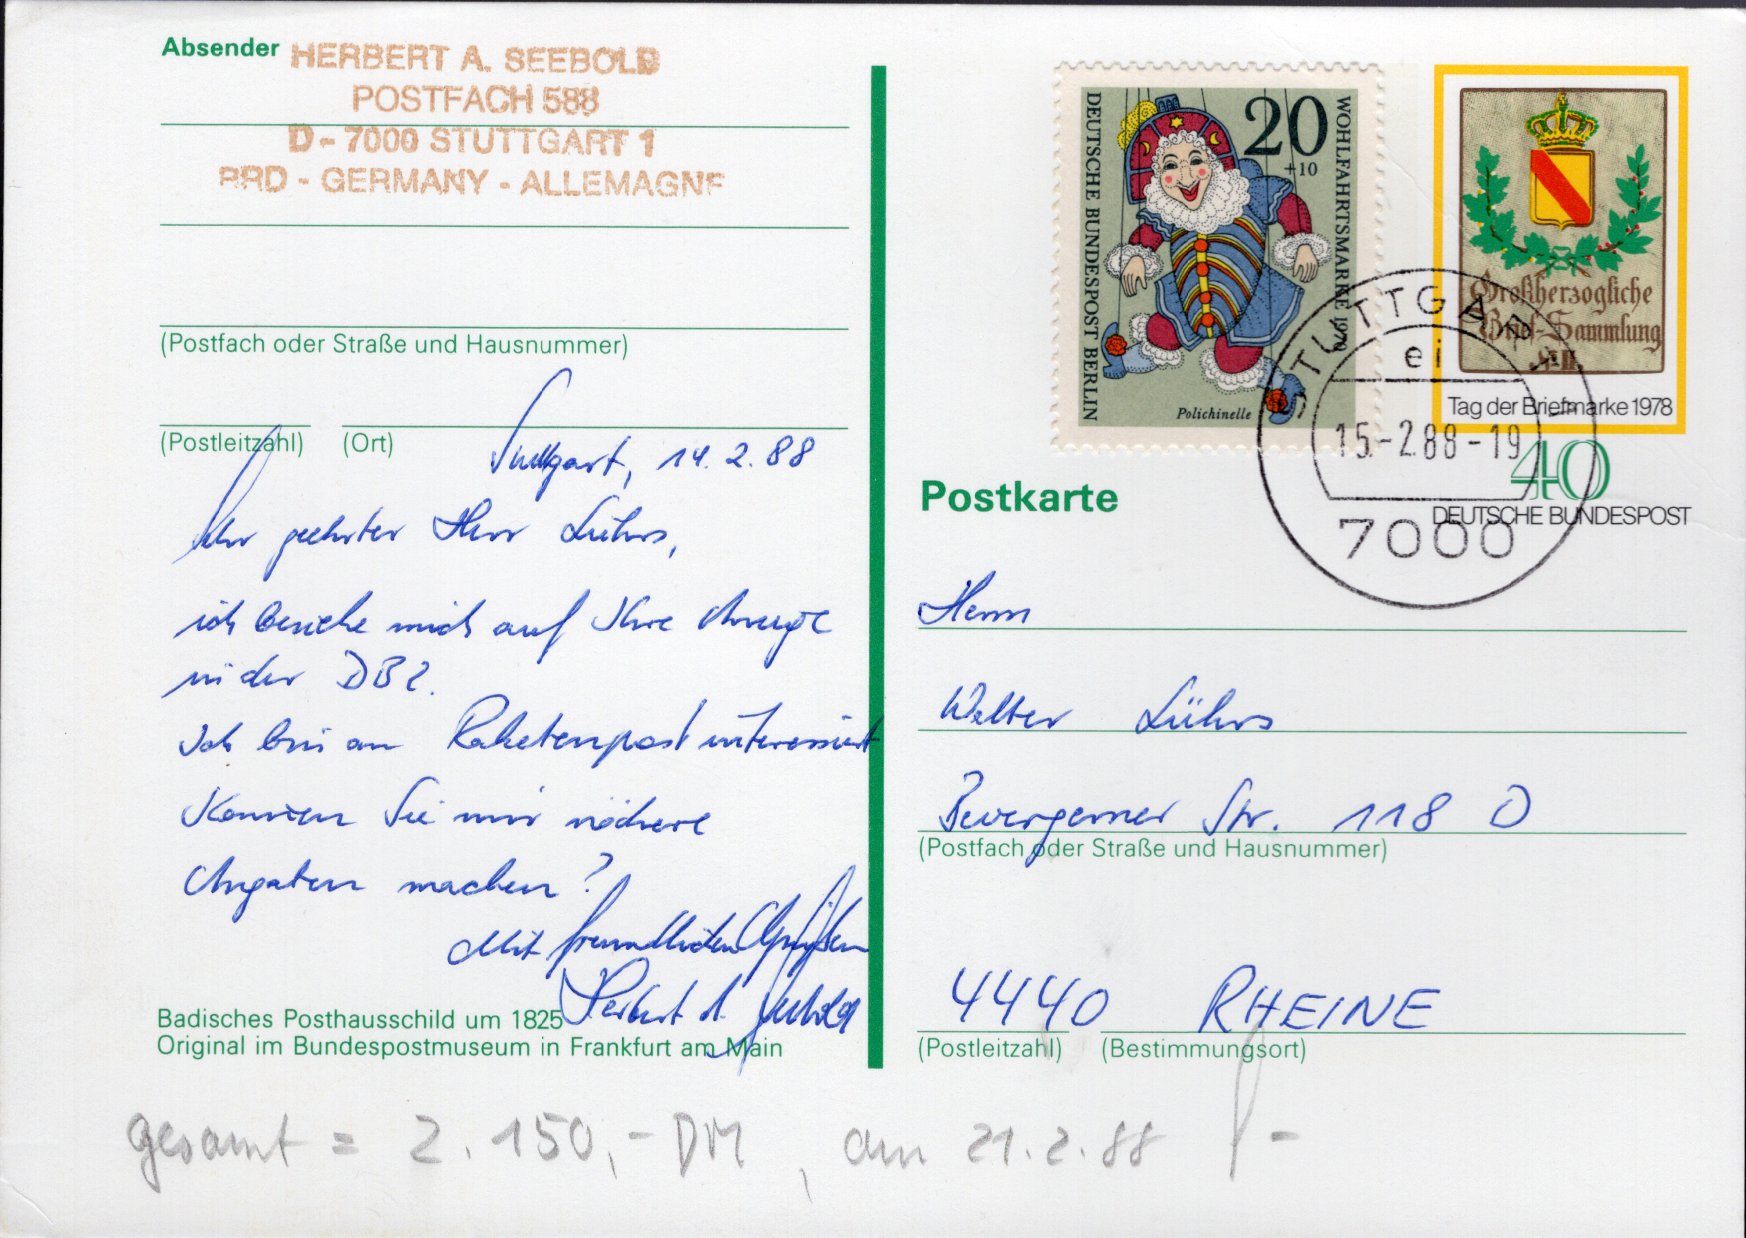 Absender
HERBERT A. SEEBOLD
POSTFACH 588
D - 7000 STUTTGART 1
BRD - GERMANY - ALLEMAGNE
(Postfach oder Straße und Hausnummer)
(Postleitzahl) (Ort)
Stuttgart, 14.2.88
Sehr geehrter Herr Lührs,
ich beziehe mich auf Ihre Anzeige
in der DBZ.
Ich bin an Raketenpost interessiert
Können Sie mir nähere
Angaben machen?
Mit freundlichen Grüßen
Herbert A. Seebold
Badisches Posthausschild um 1825
Original im Bundespostmuseum in Frankfurt am Main
DEUTSCHE BUNDESPOST BERLIN
20
+10
WOHLFAHRTSMARKE 1970
Polichinelle
Großherzogliche
Brief-Sammlung
Tag der Briefmarke 1978
40
DEUTSCHE BUNDESPOST
STUTTGART 1
ei
15.-2.88-19
7000
Postkarte
Herrn
Walter Lührs
Bevergerner Str. 118 D
(Postfach oder Straße und Hausnummer)
4440 RHEINE
(Postleitzahl) (Bestimmungsort)
gesamt = 2.150,- DM, am 21.2.88